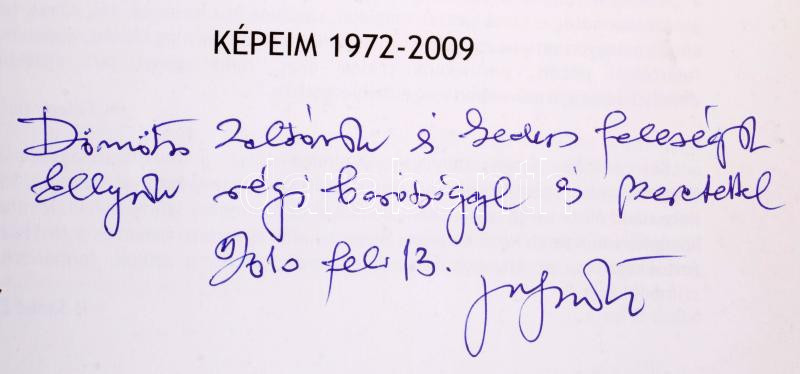 KÉPEIM 1972-2009
Dömötör Zoltánnak és kedves feleségének
Ellynek régi barátsággal és szeretettel
2010 febr 13.